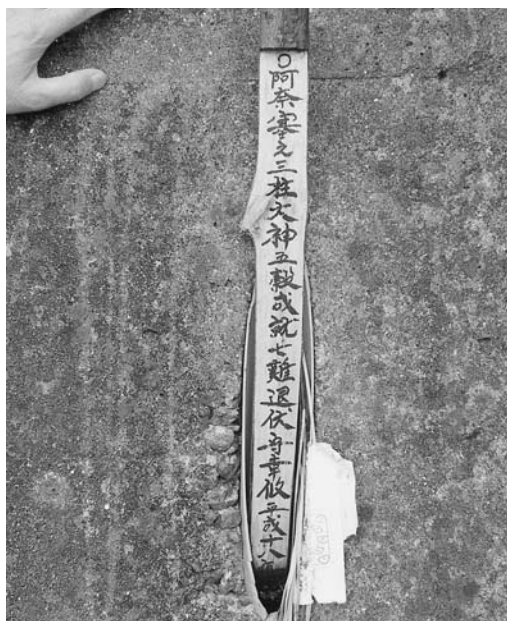 ○阿奈塞之三柱大神五穀成就七難退伏守幸攸平成十八年